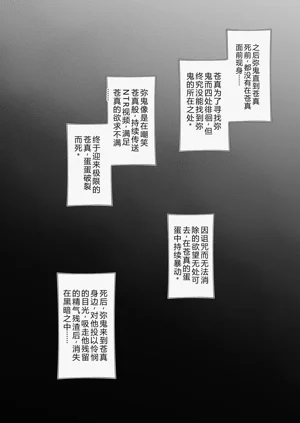 之后弥鬼直到苍真
死前，都没有在苍真
面前现身——
苍真为了寻找弥
鬼而四处徘徊，但
终究没能找到弥
鬼的所在之处。
弥鬼像是在嘲笑
苍真般，持续传送
NTR视频，满足
苍真的欲求不满
因诅咒而无法消
除的欲望无处可
去，在苍真的蛋
蛋中持续暴动。
终于迎来极限的
苍真，蛋蛋破裂
而死。
死后，弥鬼来到苍真
身边，对他投以怜悯
的目光，吸走他残留
的精气残渣后，消失
在黑暗之中……